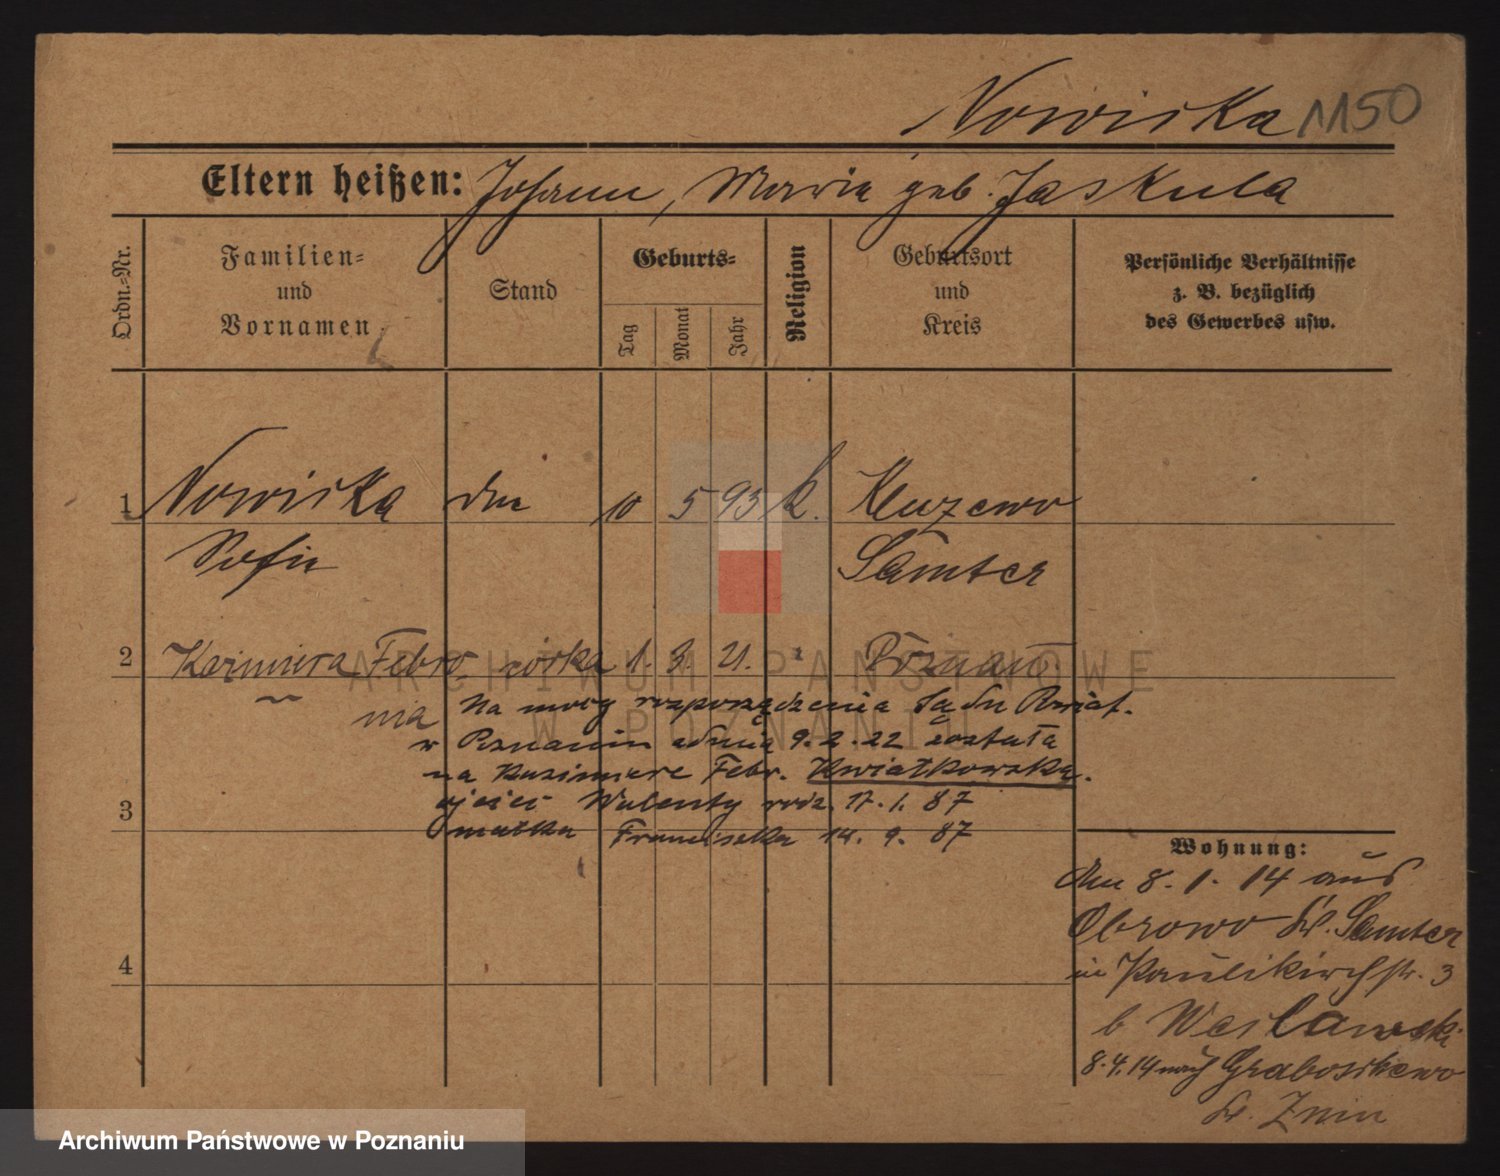 Nowicka 1150
Eltern heißen: Johann, Maria geb. Jaskula
Ordn.-Nr.
Familien-
und
Vornamen
Stand
Geburts-
Tag
Monat
Jahr
Religion
Geburtsort
und
Kreis
Persönliche Verhältnisse
z. B. bezüglich
des Gewerbes usw.
1 Nowicka 10 5 93 k. Kluzewo
Sofie Samter
2 Kazimiera Febro córka 1. 3. 21. Poznań
nia
Na mocy rozporządzenia Sądu Powiat.
w Poznaniu z dnia 9.2.22 została
na Kazimierę Febr. Kwiatkowską.
ojciec Walenty rodz. 17.1.87
3
matka Franciszka 14.9.87
Wohnung:
8.1.14 aus
Obrowo Kr. Samter
in Paulikirchstr. 3
b Weslawski
4
8.4.14 nach Graboszewo
Kr. Znin
ARCHIWUM PAŃSTWOWE
W POZNANIU
Archiwum Państwowe w Poznaniu